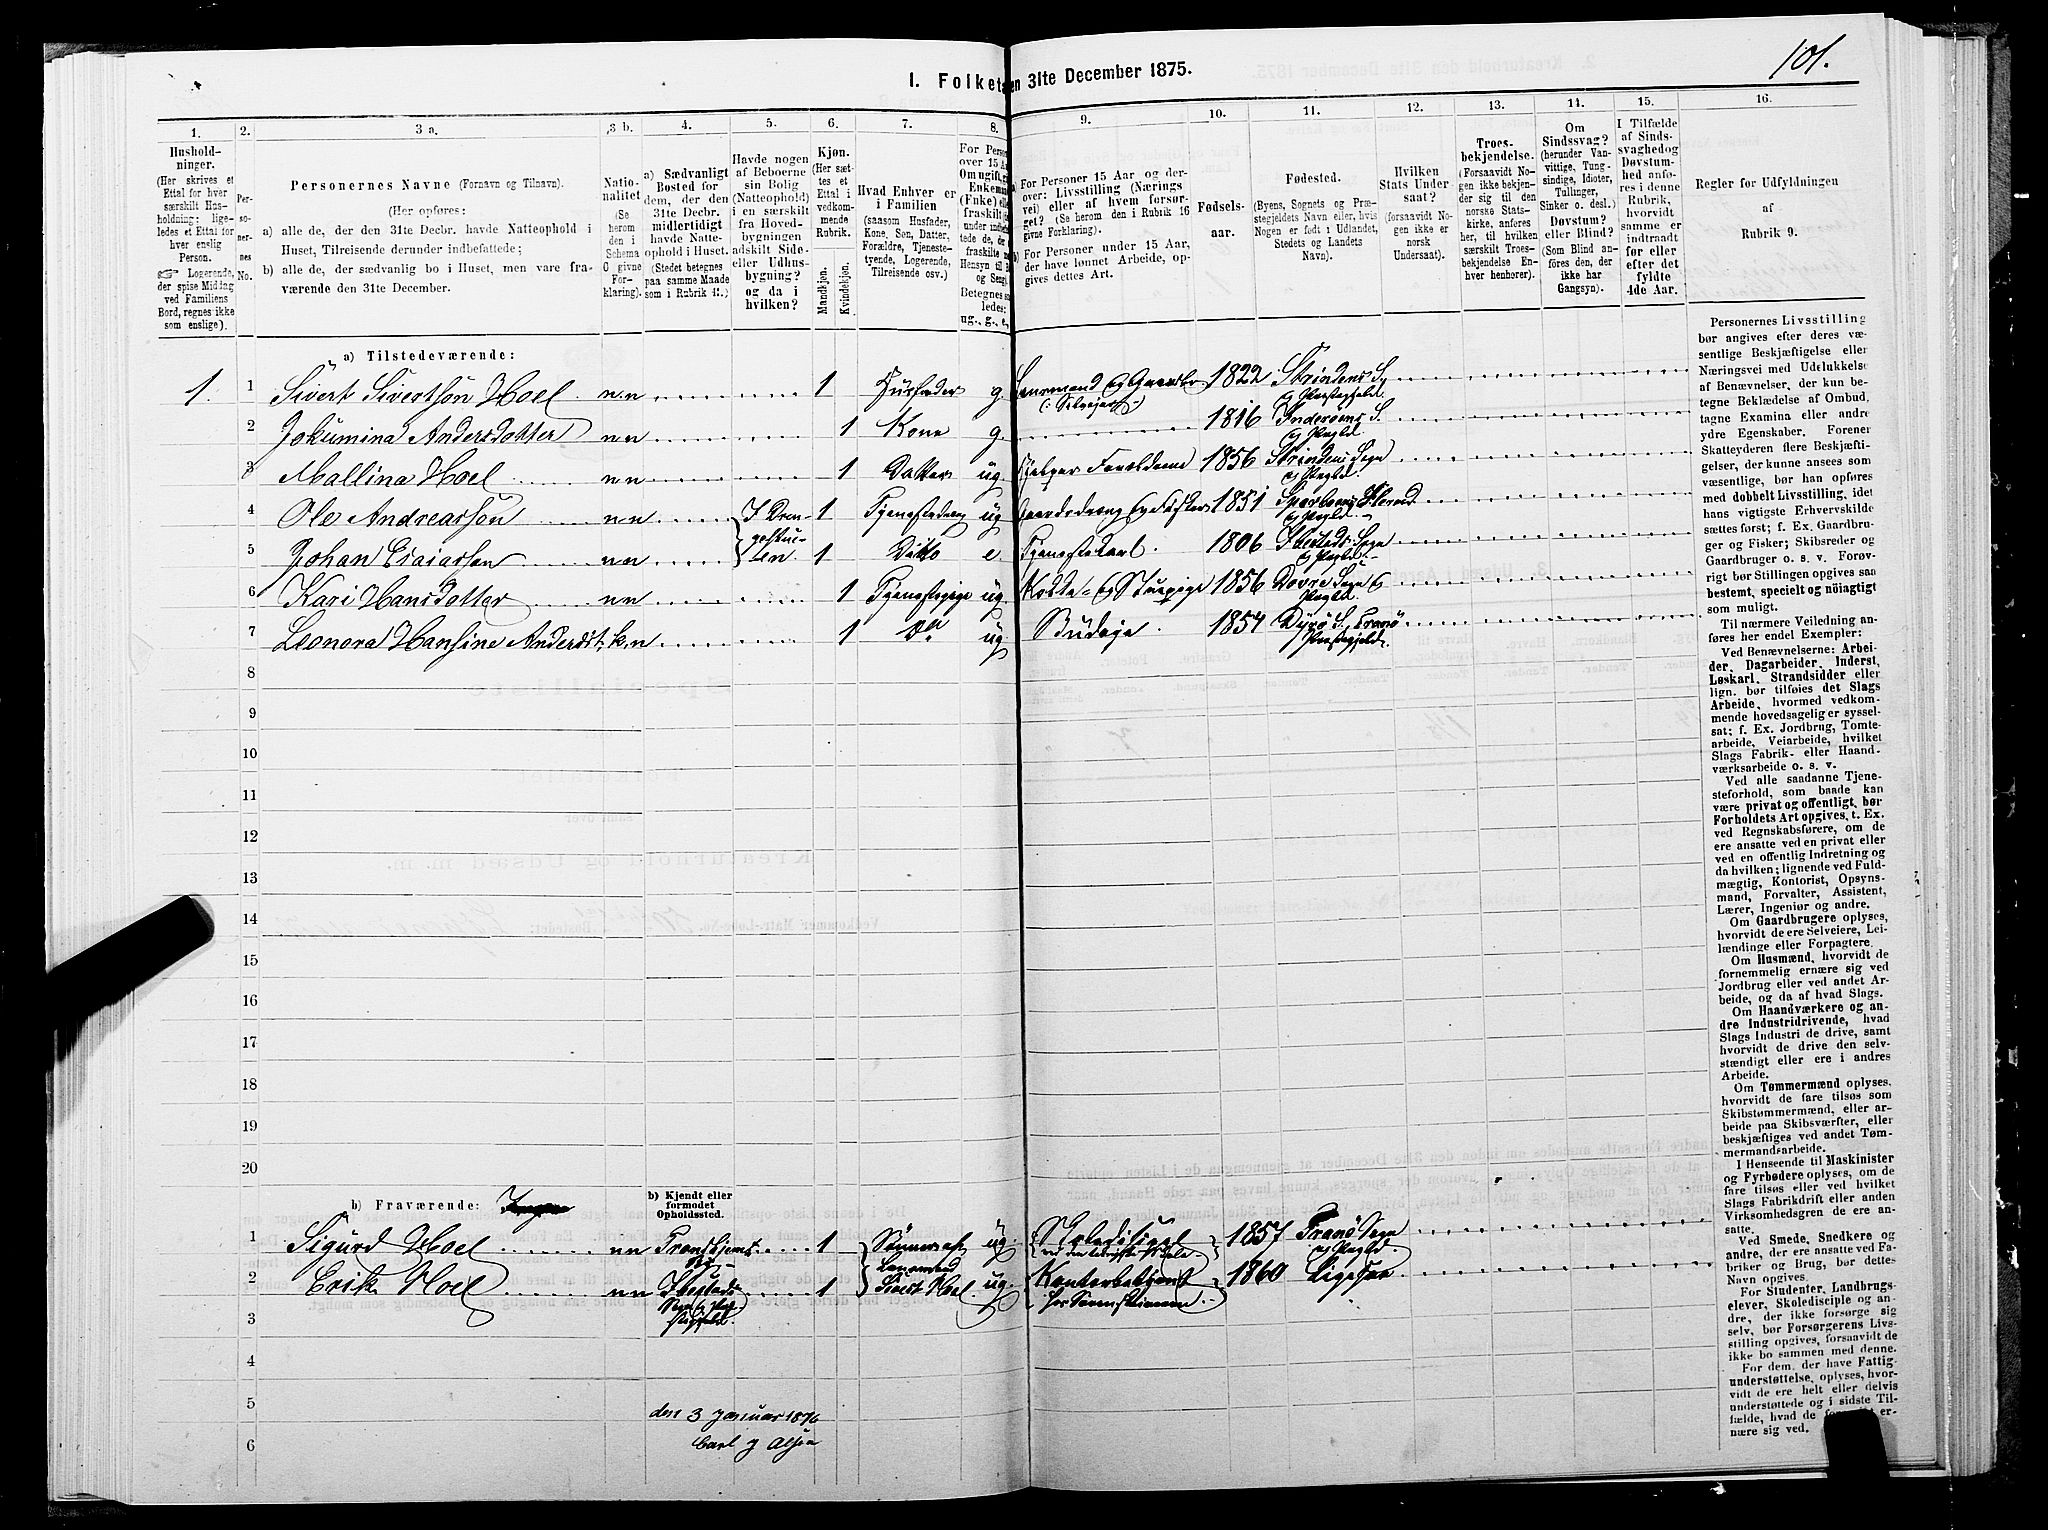 101.
1. Folket den 31te December 1875.
1.
2.
3 a.
3 b.
4.
5.
6.
7.
8.
9.
10.
11.
12.
13.
14.
15.
16.
Hushold-
ninger.
(Her skrives et
Ettal for hver
særskilt Hus-
holdning; lige-
ledes et Ettal for
hver enslig
Person.
☞ Logerende,
der spise Middag
ved Familiens
Bord, regnes ikke
som enslige).
Per-
so-
ner-
nes
No.
Personernes Navne (Fornavn og Tilnavn).
(Her opføres:
a) alle de, der den 31te Decbr. havde Natteophold i
Huset, Tilreisende derunder indbefattede;
b) alle de, der sædvanlig bo i Huset, men vare fra-
værende den 31te December.
Natio-
nalitet
(Se
herom
den i
Schema
G givne
For-
klaring).
a) Sædvanligt
Bosted for
dem, der den
31te Decbr.
midlertidigt
havde Natte-
ophold i Huset.
(Stedet betegnes
paa samme Maade
som i Rubrik 11.)
Havde nogen
af Beboerne
sin Bolig
(Natteophold)
i en særskilt
fra Hoved-
bygningen
adskilt Side-
eller Udhus-
bygning?
og da i
hvilken?
Kjøn.
(Her sæt-
tes et
Ettal i
vedkom-
mende
Rubrik.
Mandkjøn.
Kvindekjøn.
Hvad Enhver er
i Familien
(saasom Husfader,
Kone, Søn, Datter,
Forældre, Tjeneste-
tyende, Logerende,
Tilreisende osv.)
For Person
over 15 Aar
Om ugift, gift
Enkem
(Enke) eller
fraskilt
Betegnes saa-
ledes:
ug., g., e.,
a) For Personer 15 Aar og der-
over: Livsstilling (Nærings
vei) eller af hvem forsør-
get? (Se herom den i Rubrik 16
givne Forklaring).
b) For Personer under 15 Aar,
der have lønnet Arbeide, op-
gives dettes Art.
Fødsels-
aar.
Fødested.
(Byens, Sognets og Præ-
stegjeldets Navn eller, hvis
Nogen er født i Udlandet,
Stedets og Landets
Navn).
Hvilken
Stats Under-
saat?
(forsaavidt No-
gen ikke er
norsk
Undersaat).
Troes-
bekjendelse.
(Forsaavidt No-
gen ikke bekjen-
der sig til den
norske Stats-
kirke, anføres
her, til hvilken
særskilt Troes-
bekjendelse En-
hver henhører).
Om
Sindssvag?
(herunder Van-
vittige, Tung-
sindige, Idioter,
Tullinger,
Sinker o. desl.)
Døvstum?
eller Blind?
(Som Blind an-
føres den, der
ikke har
Gangsyn).
I Tilfælde
af Sinds-
svaghed og
Døvstum-
hed anfø-
res i denne
Rubrik,
hvorvidt
samme er
indtraadt
før eller
efter det
fyldte
4de Aar.
Regler for Udfyldningen
af
Rubrik 9.
a) Tilstedeværende:
1. 1 Sivert Sivertsøn Hoel n.n 1 Husfader g. Lensmand og Gaardbr. (: Selveier :) 1822 Strindens S. og Præstegjeld.
2 Jokumina Andersdotter n n 1 Kone g. 1816 Inderøens S. og Prgjld.
3 Mallina Hoel n n 1 Datter ug hjelper Forældrene 1856 Strindens Sogn og Prgjld.
4 Ole Andreassøn n.n I Dren- 1 Tjenestedreng ug Gaardsdreng og Fisker 1851
gestu-
5 Johan Esaiassen n n en. 1 Ditto e Tjenestekarl. 1806 Ibestads Sogn og Prgjld.
6 Kari Hansdotter n n 1 Tjenestepige ug. Kokke- og Stuepige 1856 Dovre Sogn og Prgjld.
7 Leonora Hansine Andersdt. k.n 1 Do ug Budeie. 1854 Dyrø S. Tranø Præstegjeld.
8
9
10
11
12
13
14
15
16
17
18
19
20
b) Fraværende:
b) Kjendt eller
formodet
Opholdssted.
1 Sigurd Hoel n n Trondhjems By 1 Sønner af ug. Skoledisipel 1857 Tranø Sogn og Prgjld.
Lensmand
2 Erik Hoel n n Ibestads Sogn og Præstegjeld. 1 Sivert Hoel. ug. Kontorbetjent hos Sorenskriveren. 1860 Ligesaa
3
4
5
6
den 3 Januar 1876
Carl J Olsen
Personernes Livsstilling
bør angives efter deres væ-
sentlige Beskjæftigelse eller
Næringsvei med Udelukkelse
af Benævnelser, der kun be-
tegne Beklædelse af Ombud,
tagne Examina eller andre
ydre Egenskaber. Forener
Skatteyderen flere Beskjæfti-
gelser, der kunne ansees som
væsentlige, bør han opføres
med dobbelt Livsstilling, idet
hans vigtigste Erhvervskilde
sættes først; f. Ex. Gaardbru-
ger og Fisker; Skibsreder og
Gaardbruger o. s. v. Forøv-
rigt bør Stillingen opgives saa
bestemt, specielt og nöiagtigt
som muligt.
Til nærmere Veiledning an-
føres her endel Exempler:
Ved Benævnelserne: Arbei-
der, Dagarbeider, Inderst,
Løskarl, Strandsidder eller
lign. bør tilføies det Slags
Arbeide, hvormed vedkom-
mende hovedsagelig er syssel-
sat; f. Ex. Jordbrug, Tomte-
arbeide, Veiarbeide, hvilket
Slags Fabrik- eller Haand-
værksarbeide o. s. v.
Ved alle saadanne Tjene-
steforhold, som baade kan
være privat og offentligt, bør
Forholdets Art opgives, t. Ex.
ved Regnskabsførere, om de
ere ansatte ved en privat eller
ved en offentlig Indretning og
da hvilken; lignende ved Fuld-
mægtig, Kontorist, Opsyns-
mand, Forvalter, Assistent,
Lærer, Ingeniør og andre.
Om Gaardbrugere oplyses,
hvorvidt de ere Selveiere, Lei-
lændinge eller Forpagtere.
Om Husmænd, hvorvidt de
fornemmelig ernære sig ved
Jordbrug eller ved andet Ar-
beide, og da af hvad Slags.
Om Haandværkere og an-
dre Industridrivende, hvad
Slags Industri de drive, samt
hvorvidt de drive den selv-
stændigt eller ere i andres
Arbeide.
Om Tømmermænd oplyses,
hvorvidt de fare tilsøs som
Skibstømmermænd, eller ar-
beide paa Skibsværfter, eller
beskjæftiges ved andet Tøm-
mermandsarbeide.
I Henseende til Maskinister
og Fyrbødere oplyses, om de
fare tilsøs eller ved hvilket
Slags Fabrikdrift eller anden
Virksomhedsgren de ere an-
satte.
Ved Smede, Snedkere og
andre, der ere ansatte ved Fa-
briker og Brug, bør dettes
Navn opgives.
For Studenter, Landbrugs-
elever, Skoledisciple og an-
dre, der ikke forsørge sig
selv, bør Forsørgerens Livs-
stilling opgives, forsaavidt de
ikke bo sammen med denne.
For dem, der have Fattig-
understøttelse, oplyses, hvor-
vidt de ere helt eller delvis
understøttede og i sidste Til-
fælde, hvad de forøvrigt er-
nære sig ved.